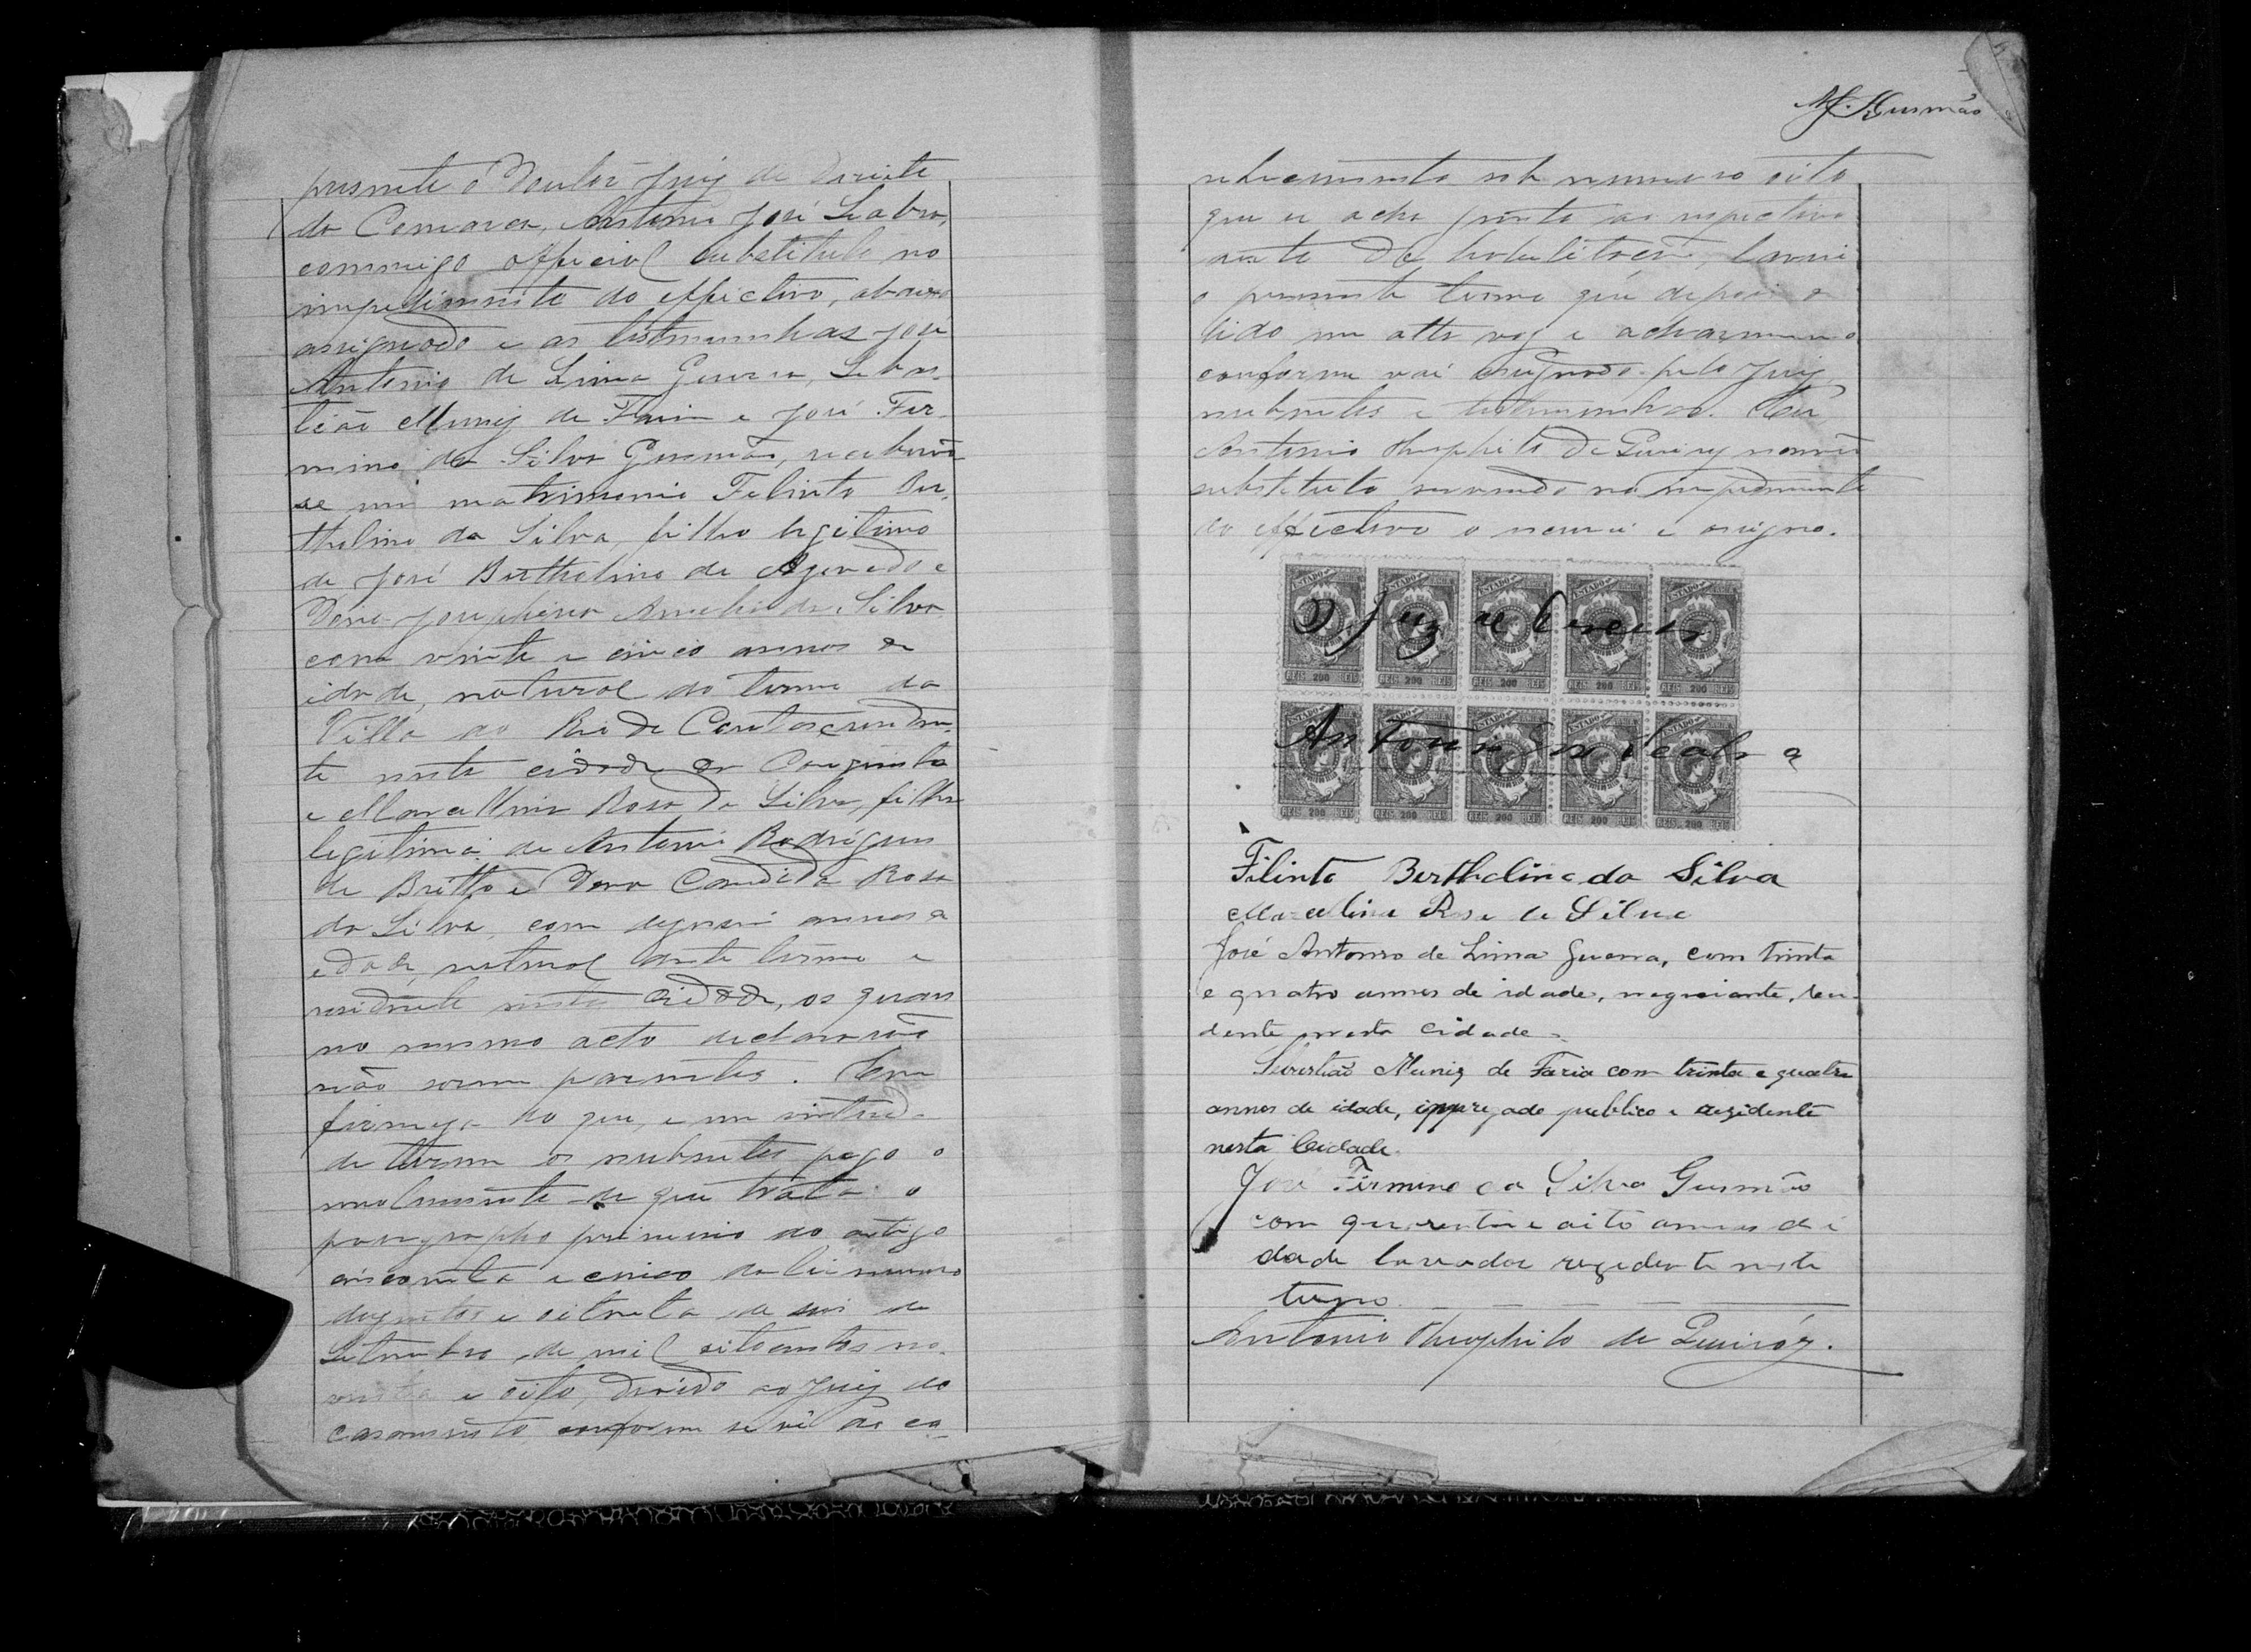 presente o Doutor Juiz de Direito
da Comarca, Antonio José Seabra,
commigo official substituto no
impedimento do effectivo, abaixo
assignado e as testemunhas José
Antonio de Lima Guerra, Sebas-
tião Muniz de Faria e José Fir-
mino da Silva Gusmão, receberão-
se em matrimonio Felinto Ber-
tholino da Silva, filho legitimo
de José Bertholino de Azevedo e
Dona Josephina Amelia da Silva
com vinte e cinco annos de
idade, natural do termo da
Villa do Rio de Contas, residen-
te nesta cidade de
e Marcellina Rosa da Silva, filha
legitima de Antonio Rodrigues
de Britto e Dona Candida Rosa
da Silva, com annos de
edade, natural deste termo e
residente nesta Cidade, os quaes
no mesmo acto declararão
não serem parentes. Em
firmeza do que, e em virtude
de terem os nubentes pago o
emolumento de que trata o
paragrapho primeiro do artigo
e cinco da lei numero
duzentos e oitenta de seis de
Setembro de mil oitocentos no-
venta e oito, devido ao Juiz do
casamento conforme se vê do co-
M. J. Gusmão
nhecimento sob numero oito
que se acha junto ao respectivo
auto de habilitação, lavrei
o presente termo que depois de
lido em alta voz e
conforme vai assignado pelo Juiz,
nubentes e testemunhas. Eu,
Antonio Theophilo de Queiroz
substituto servindo no impedimento
do effectivo o escrevi e assigno.
ESTADO
REIS 200 REIS
O Juiz de
Antonio José Seabra
Filinto Bertholino da Silva
Marcelina Rosa da Silva
José Antonio de Lima Guerra, com trinta
e quatro annos de idade, negociante, resi-
dente nesta cidade.
Sebastião Muniz de Faria com trinta e quatro
annos de idade, empregado publico e rezidente
nesta Cidade.
José Firmino da Silva Gusmão
com quarenta e oito annos de i
dade lavrador rezidente neste
termo.
Antonio Theophilo de Queiróz.